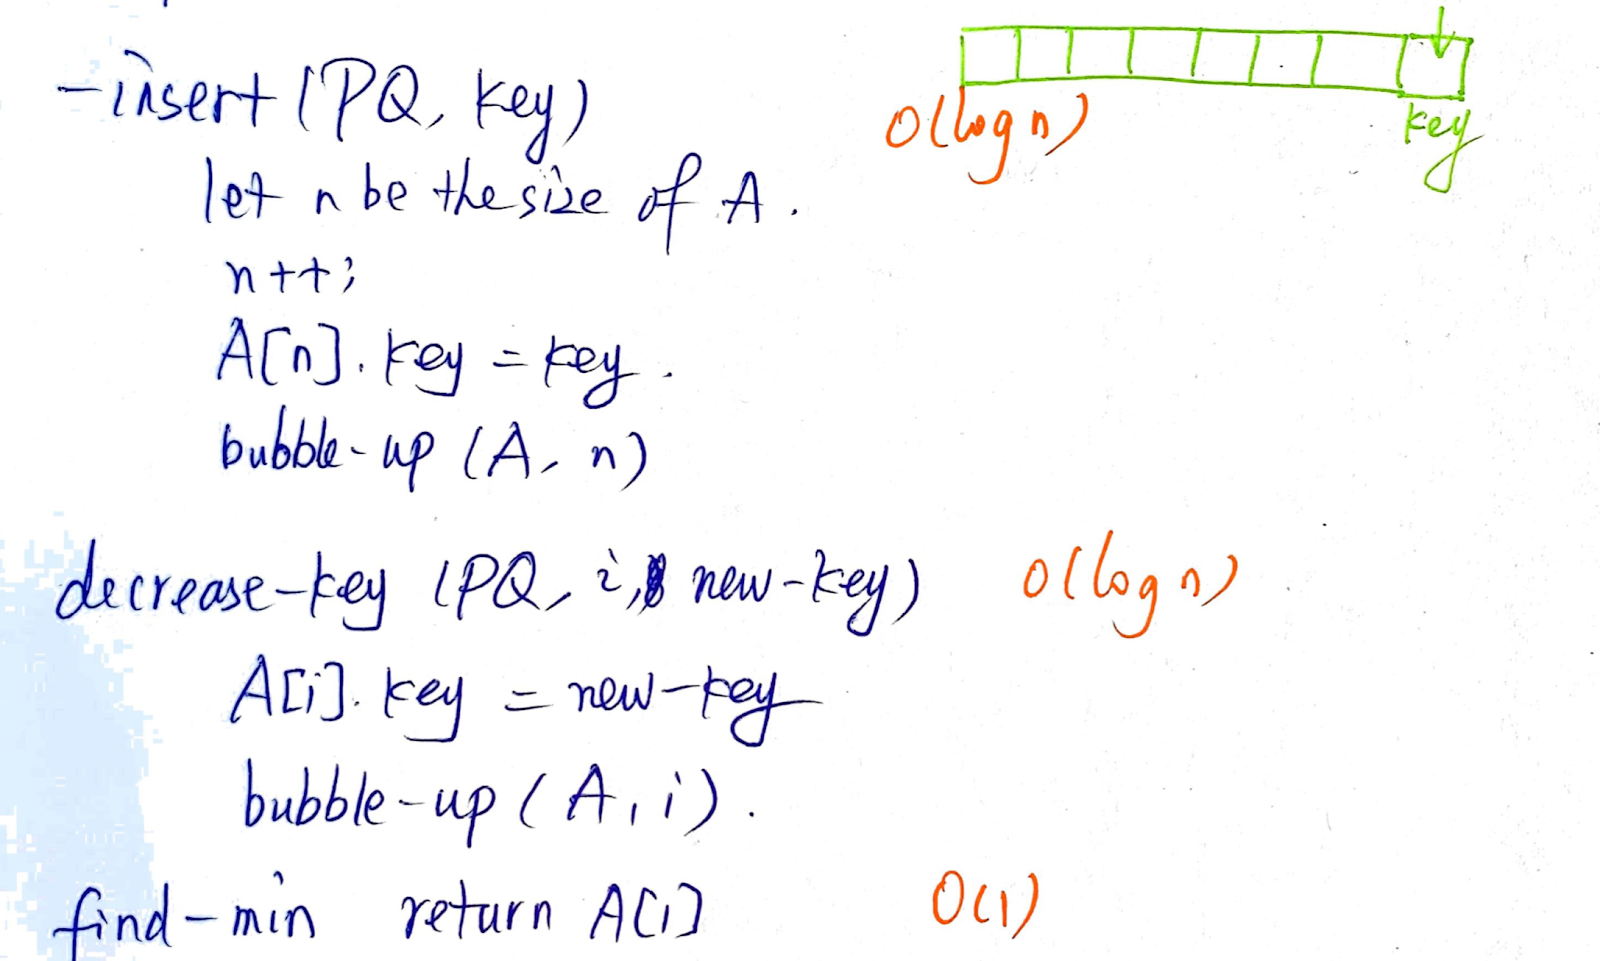 -insert (PQ, key)
O(log n)
key
let n be the size of A.
n++;
A[n].key = key.
bubble-up (A, n)
decrease-key (PQ, i, new-key)
O(log n)
A[i].key = new-key
bubble-up (A, i).
find-min return A[1]
O(1)